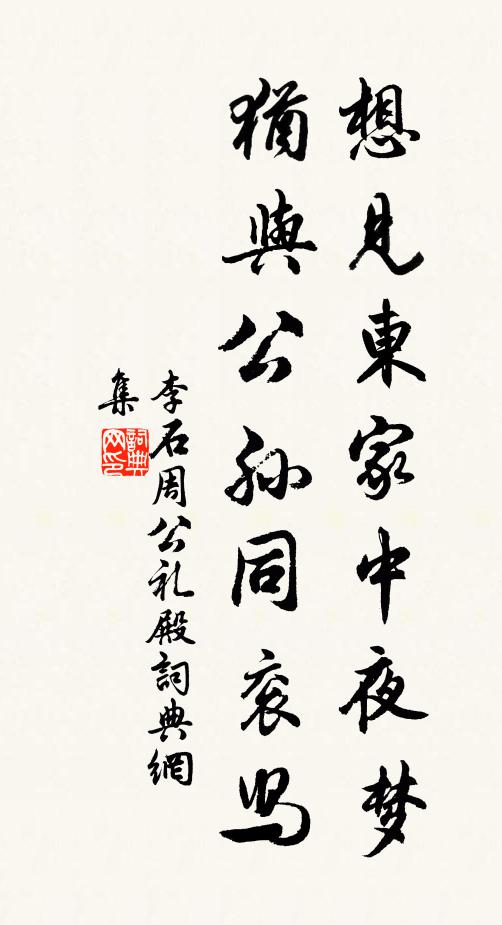 想見東家中夜梦
猶與公孙同衮舄
李石周公礼殿詞典網
集
詞典网印